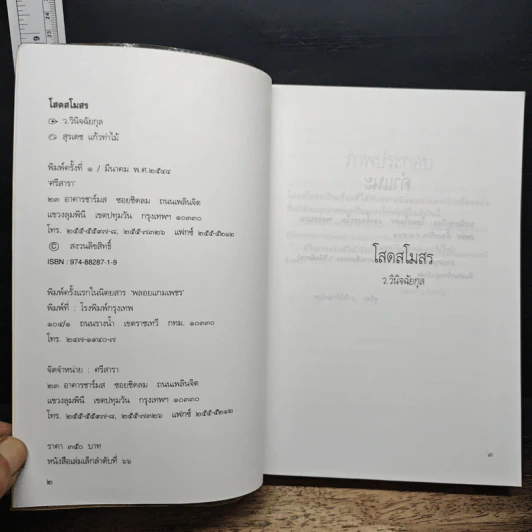 โสดสโมสร
ว.วินิจฉัยกุล
สุรเดช แก้วท่าไม้
พิมพ์ครั้งที่ ๑ / มีนาคม พ.ศ.๒๕๔๔
"ศรีสารา"
๒๓ อาคารชาร์มส ซอยชิดลม ถนนเพลินจิต
แขวงลุมพินี เขตปทุมวัน กรุงเทพฯ ๑๐๓๓๐
โทร. ๒๕๕-๕๕๙๗-๘, ๒๕๕-๗๓๒๖ แฟกซ์ ๒๕๕-๕๒๑๒
© สงวนลิขสิทธิ์
ISBN : 974-88287-1-9
พิมพ์ครั้งแรกในนิตยสาร "พลอยแกมเพชร"
พิมพ์ที่ : โรงพิมพ์กรุงเทพ
๑๐๔/๑ ถนนรางน้ำ เขตราชเทวี กทม. ๑๐๓๓๐
โทร. ๒๔๗-๑๙๔๐-๗
จัดจำหน่าย : ศรีสารา
๒๓ อาคารชาร์มส ซอยชิดลม ถนนเพลินจิต
แขวงลุมพินี เขตปทุมวัน กรุงเทพฯ ๑๐๓๓๐
โทร. ๒๕๕-๕๕๙๗-๘, ๒๕๕-๗๓๒๖ แฟกซ์ ๒๕๕-๕๒๑๒
ราคา ๓๕๐ บาท
หนังสือเล่มเล็กลำดับที่ ๖๖
๒
โสดสโมสร
ว.วินิจฉัยกุล
๓